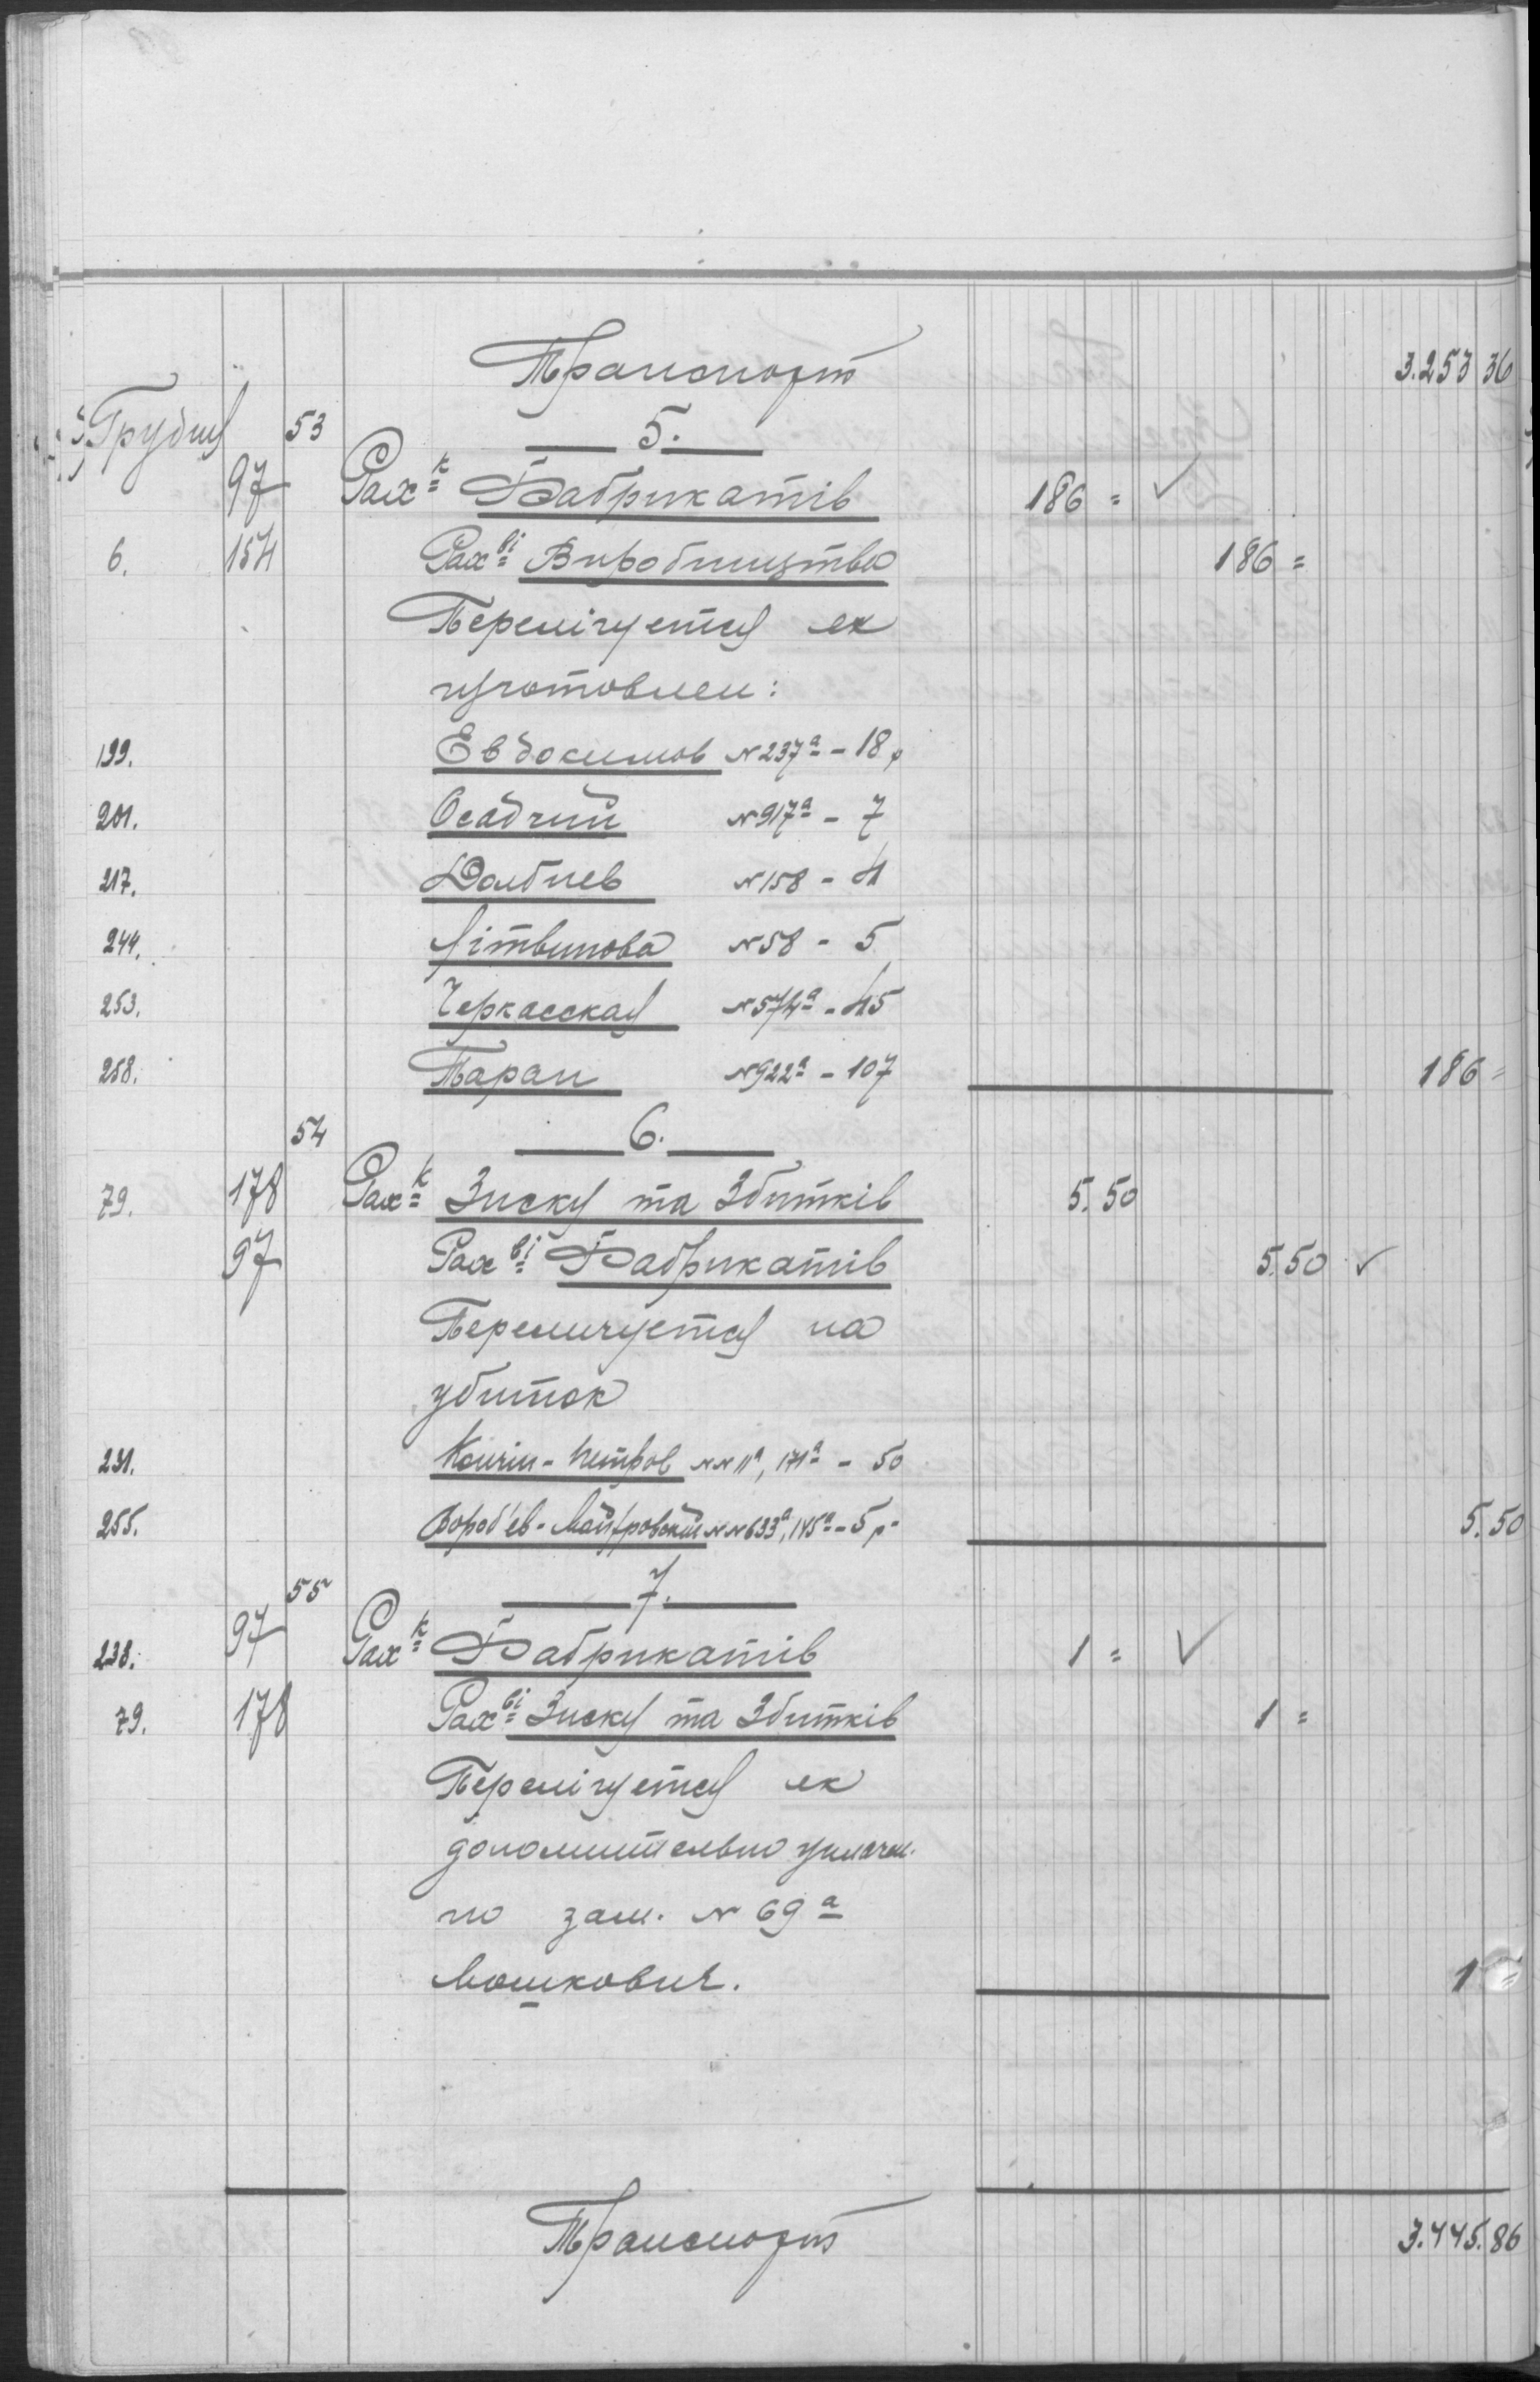 Транспорт 3.253 36
Грудня 53 5.
97 Рах-к Фабрикатів 186 = ✓
6. 154 Рах-ві Виробництва 186 =
Перелічуетця як
изготовлен:
199. Евдокимов №237а - 18 р
201. Осадчий №917а - 7
217. Долбнев №158 - 4
244. Літвинова №58 - 5
253. Черкасская №574а - 45
258. Таран №922а - 107 186 =
54 6.
79. 178 Рах-к Зиску та Збитків 5.50
97 Рах-ві Фабрикатів 5.50 ✓
Переличуетця на
убиток
231. Петров №№11а, 171а - 50
255. Вороб'ев - №№633а, 145а - 5 р. 5.50
55 7.
238. 97 Рах-к Фабрикатів 1 = ✓
79. 178 Рах-ві Зиску та Збитків 1 =
Перелічуетця як
дополнительно уплачен.
по зам. № 69а
Мошкович. 1 =
Транспорт 3.445.86